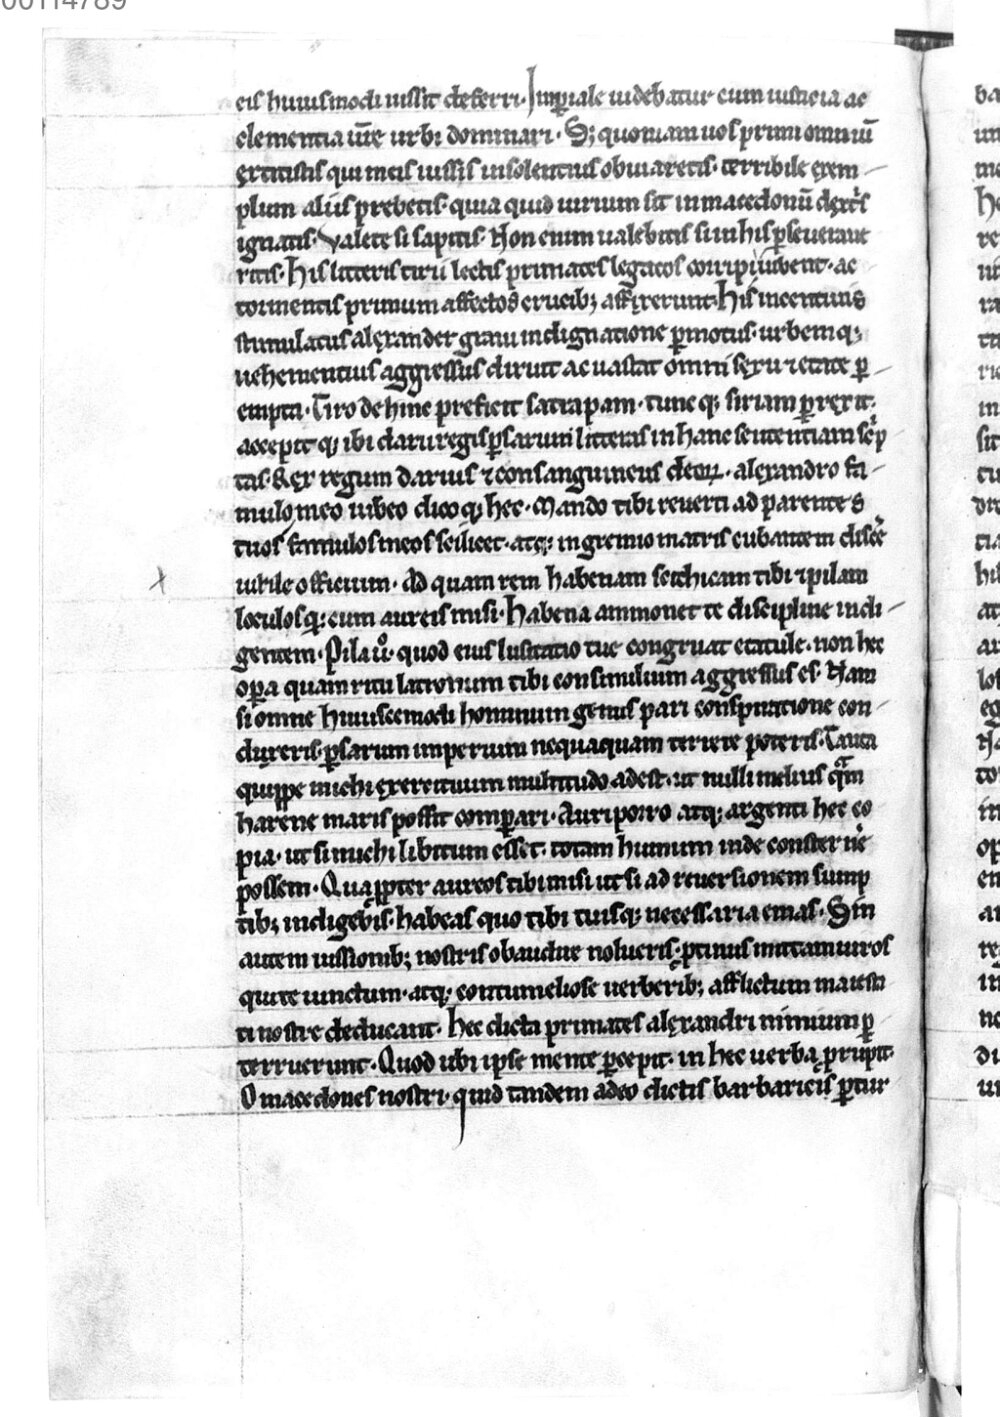 00114789
eis huiusmodi iussit deferri. Imꝑiale uidebatur cum iusticia ac
clementia ur̄e urbi dominari. S; quoniam uos primi omniū
extitistis qui meis iussis insolentius obuiaretis. terribile exem-
plum aliis prebetis. quia quid uirium sit in macedonū dext̄is
ignatis. Valete si sapitis. Non enim ualebitis si in his ꝑseueraue
ritis. His litteris tirii lectis primates legatos corripi iubent. ac
tormentis primum affectos crucib; affixerunt. His incentiuis
stimulatus alexander graui indignatione ꝑmotus. urbemq;
uehementius aggressus diruit ac uastat omni sexu ⁊ etate ꝑ-
empta. Tiro dehinc preficit satrapam. tuncq; siriam ꝑrexit.
accepitq; ibi darii regis ꝑsarum litteras in hanc sententiam sc̄p
tas. Rex regum darius ⁊ consanguineus deoꝝ. alexandro fa-
mulo meo iubeo dicoq; hec. Mando tibi reuerti ad parentes
tuos famulos meos scilicet. atq; in gremio matris cubantem disc̄e
uirile officium. Ad quam rem habenam scithicam tibi ⁊ pilam
loculosq; cum aureis misi. Habena ammonet te discipline indi-
gentem. Pila uº. quod eius lusitatio tue congruat etatule. non hec
oꝑa quam ritu latronum tibi consimilium aggressus es. Nam
si omne huiuscemodi hominum genus pari conspiratione con-
duxeris. ꝑsarum imperium nequaquam terrere poteris. Tanta
quippe michi exercituum multitudo adest. ut nulli melius qᵃm
harene maris possit comꝑari. Auri porro atq; argenti hec co
pia. ut si michi libitum esset. totam humum inde consternē
possem. Quaꝓpter aureos tibi misi ut si ad reuersionem sump
tib; indigebis. habeas quo tibi tuisq; necessaria emas. Sin
autem iussionib; nostris obaudire nolueris. ꝓtinus mittam uiros
qui te uinctum. atq; contumeliose uerberib; afflictum maiesta
ti nostre deducant. Hec dicta primates alexandri nimium ꝑ
terruerunt. Quod ubi ipse mente ꝑcepit. in hec uerba prupit.
O macedones nostri. quid tandem adeo dictis barbaricis ꝑtur